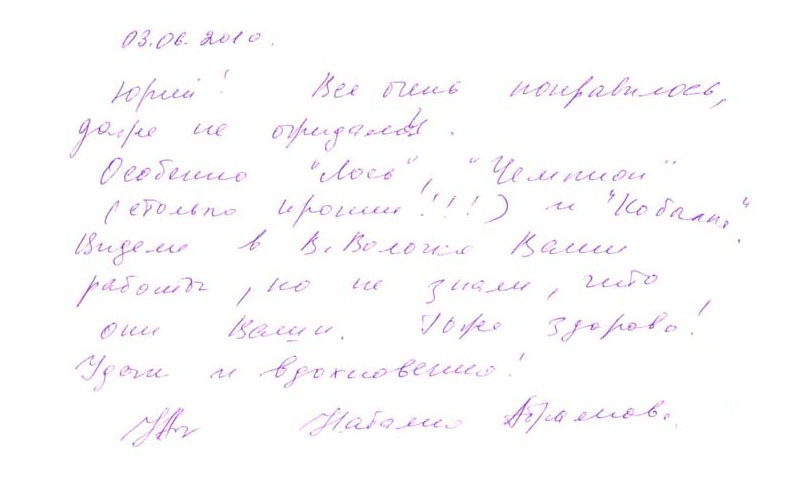 03.06.2010.
Юрий! Все очень понравилось,
даже не ожидали.
Особенно "Лось", "Чемпион"
(столько иронии!!!) и
Видели в В. Волочке Ваши
работы, но не знали, что
они Ваши. Тоже здорово!
Удачи и вдохновения!
Наталия Абрамова.